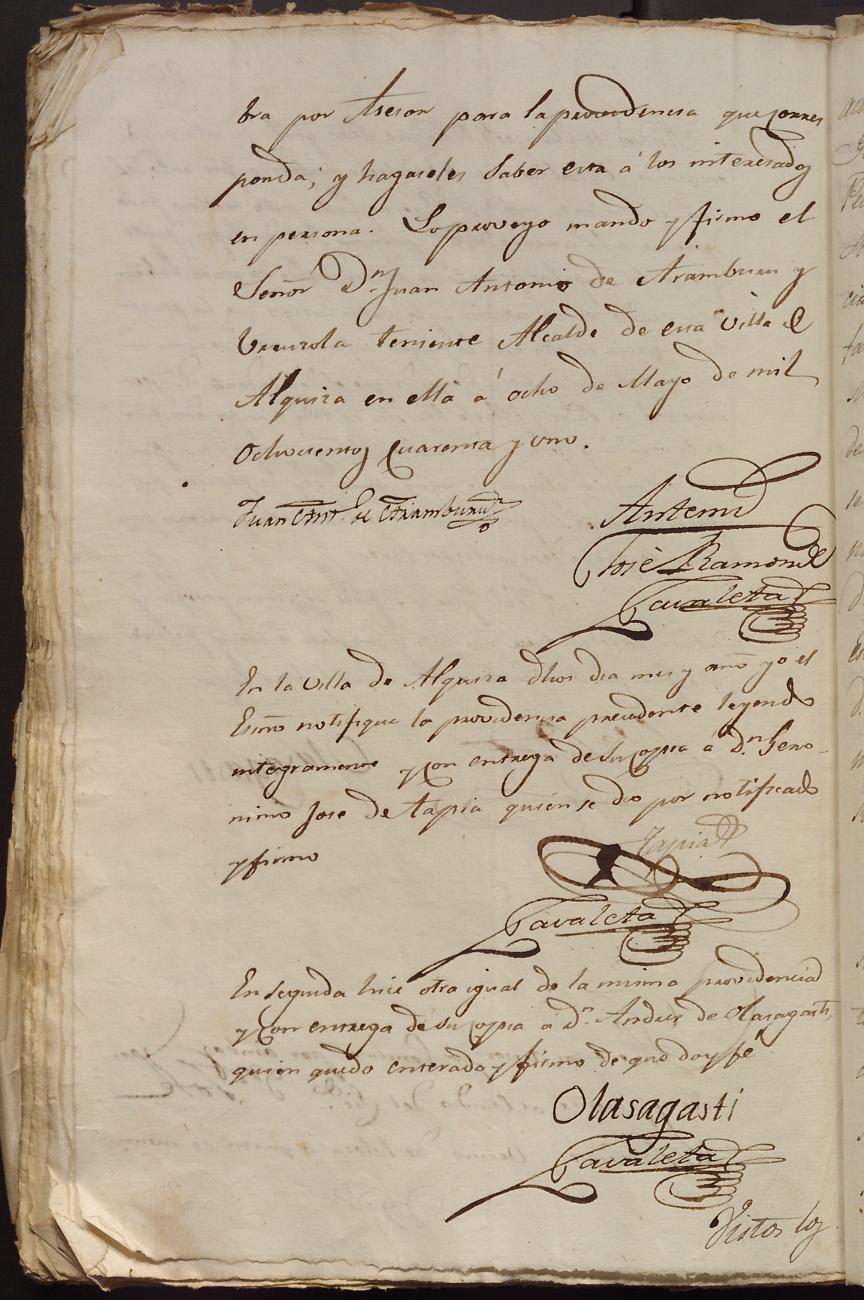 bra por Asesor para la providencia que corres
ponda; y hagaseles saber esta á los interesados
en persona. Lo proveyo mando y firmo el
Señor Dn Juan Antonio de Aramburu y
teniente Alcalde de esta villa de
Alquiza en ella á ocho de Mayo de mil
Ochocientos Cuarenta y uno.
Juan Antº de Aramburu
Antemi
José Ramon de
Zavaleta
En la Villa de Alquiza dhos dia mes y año yo el
Esno notifique la providencia precedente leyendo
integramente y con entrega de su copia á Dn Gero-
nimo Jose de Tapia quien se dio por notificado
y firmo
Tapia
Zavaleta
En seguida hice otra igual de la misma providencia
y con entrega de su copia á Dn Andres de Olasagasti,
quien quedo enterado y firmo de que doy fé
Olasagasti
Zavaleta
Vistos los